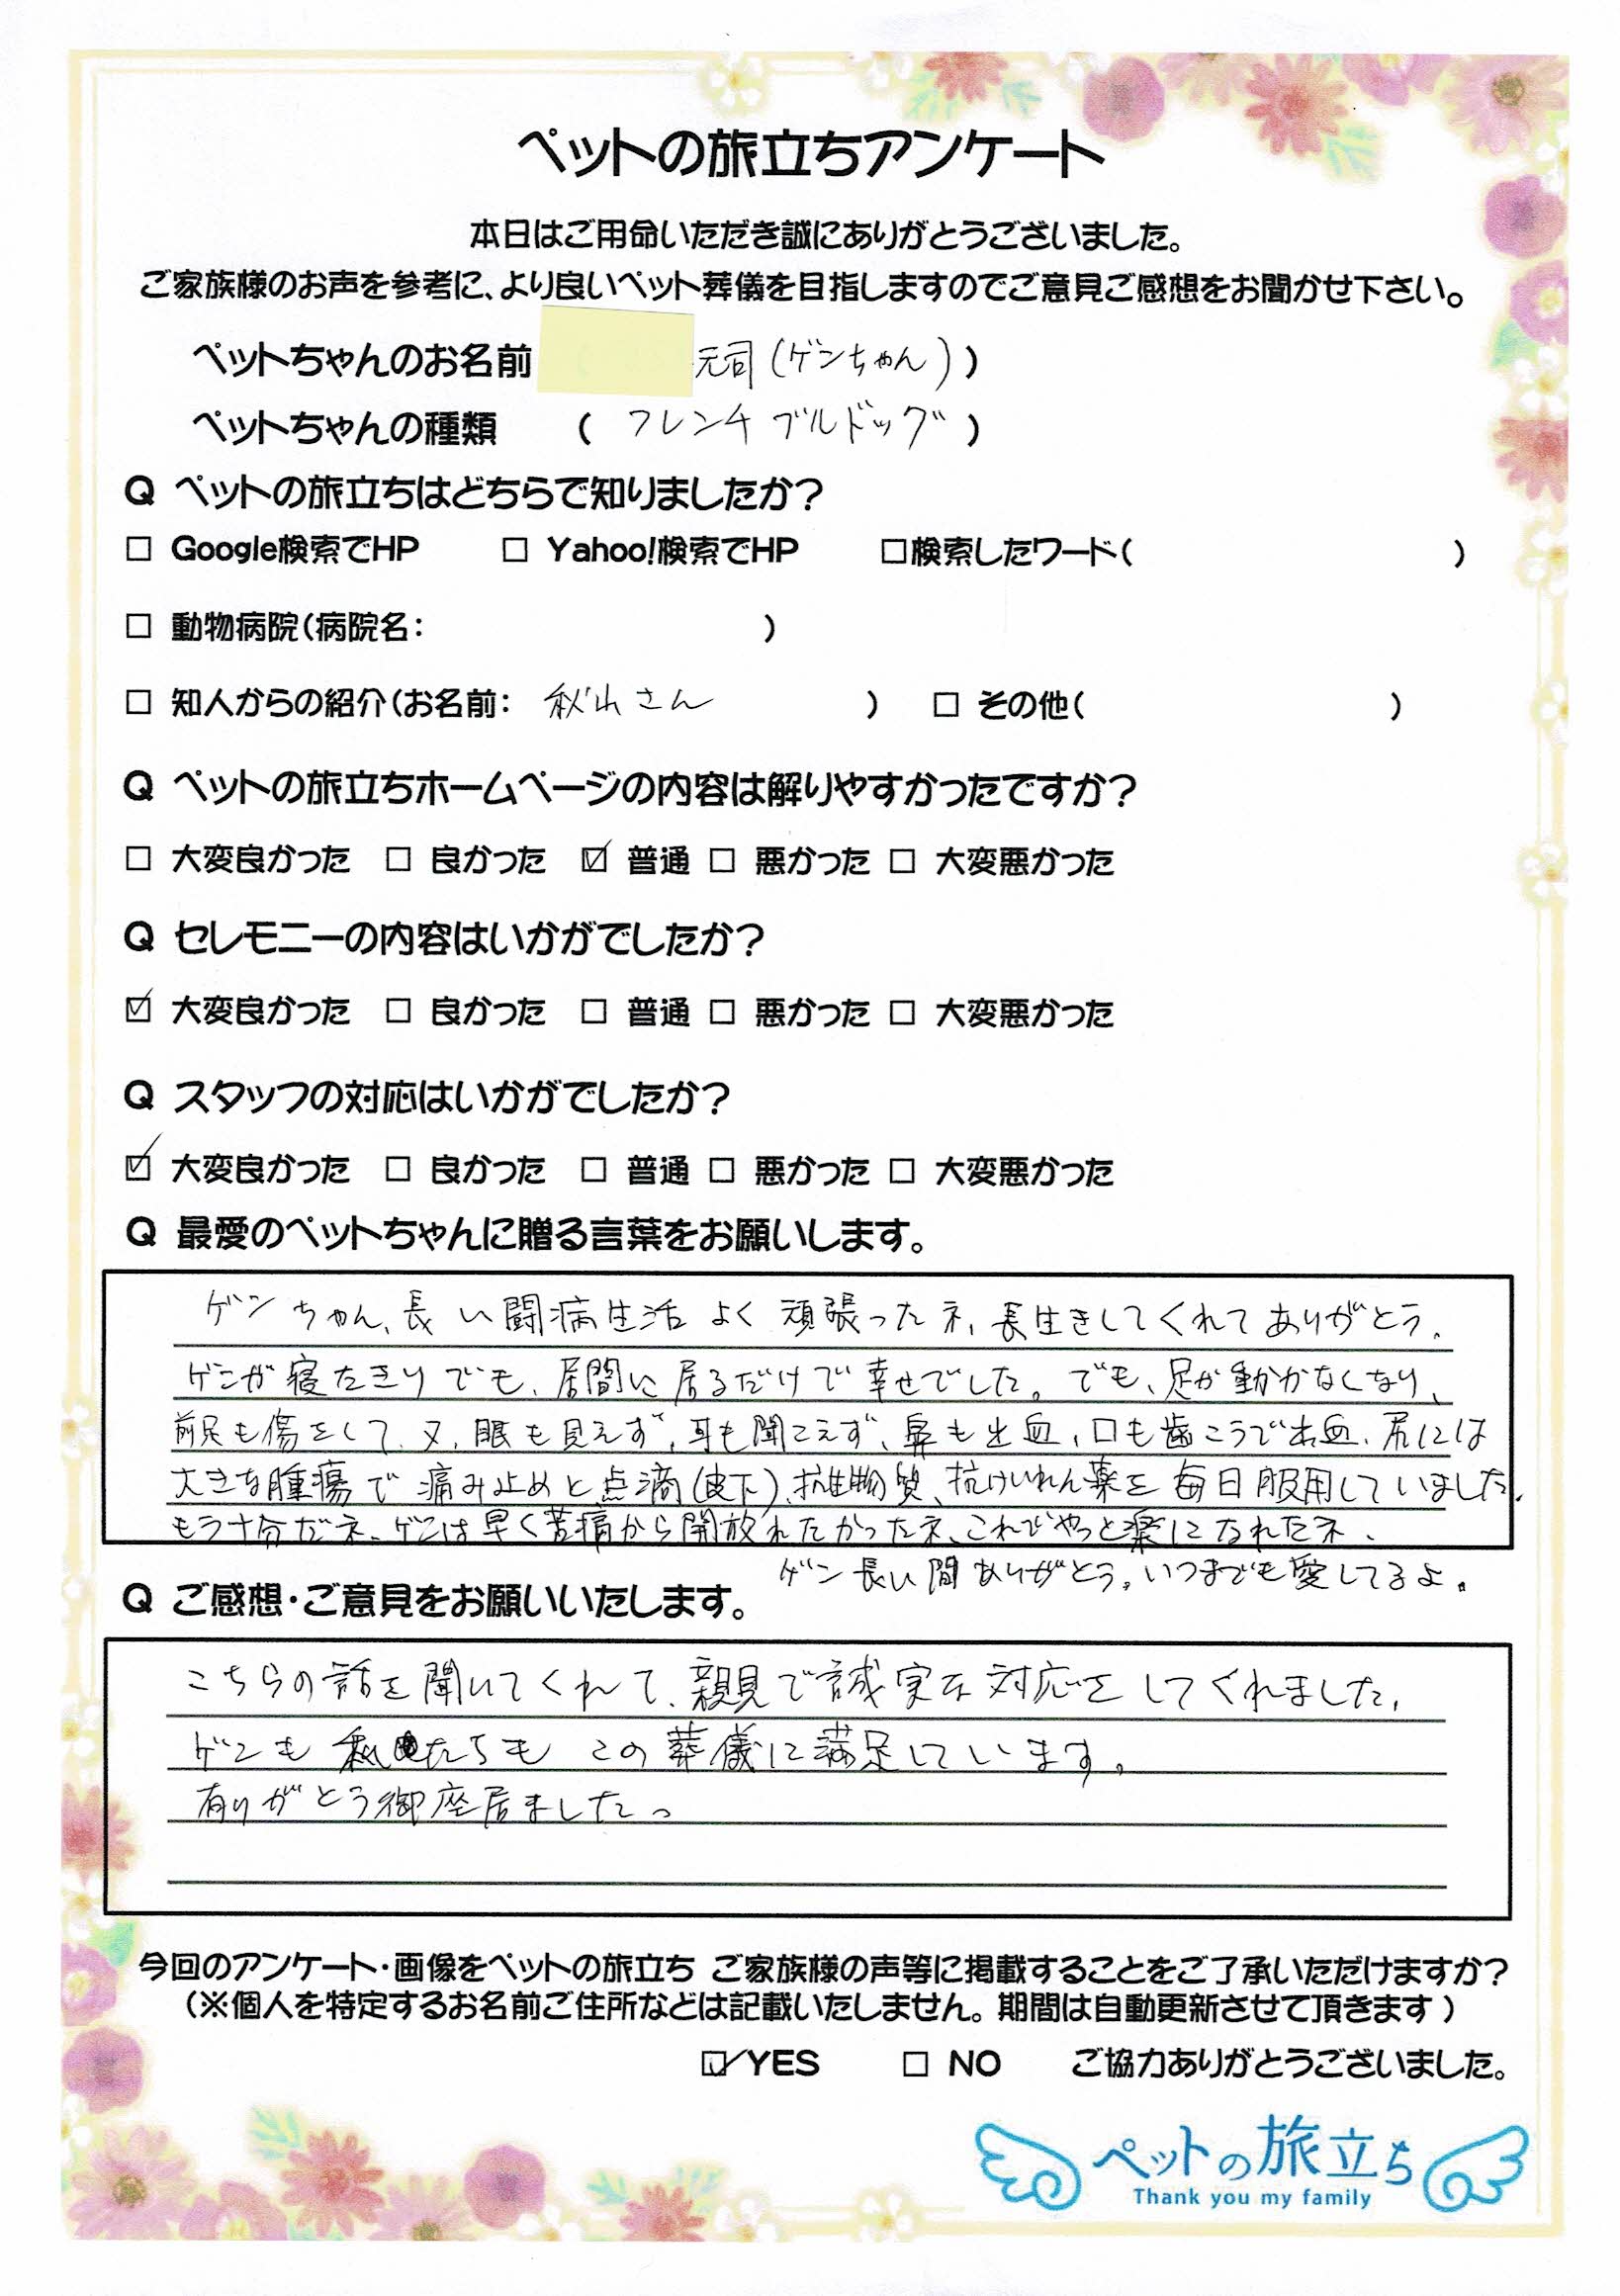 ペットの旅立ちアンケート
本日はご用命いただき誠にありがとうございました。
ご家族様のお声を参考に、より良いペット葬儀を目指しますのでご意見ご感想をお聞かせ下さい。
ペットちゃんのお名前 元司(ゲンちゃん))
ペットちゃんの種類 ( フレンチブルドッグ )
Q ペットの旅立ちはどちらで知りましたか?
□ Google検索でHP □ Yahoo!検索でHP □検索したワード( )
□ 動物病院(病院名: )
□ 知人からの紹介(お名前: 秋山さん ) □ その他( )
Q ペットの旅立ちホームページの内容は解りやすかったですか?
□ 大変良かった □ 良かった ☑ 普通 □ 悪かった □ 大変悪かった
Q セレモニーの内容はいかがでしたか?
☑ 大変良かった □ 良かった □ 普通 □ 悪かった □ 大変悪かった
Q スタッフの対応はいかがでしたか?
☑ 大変良かった □ 良かった □ 普通 □ 悪かった □ 大変悪かった
Q 最愛のペットちゃんに贈る言葉をお願いします。
ゲンちゃん、長い闘病生活よく頑張ったネ、長生きしてくれてありがとう。
ゲンが寝たきりでも、居間に居るだけで幸せでした。でも、足が動かなくなり、
前足も傷をして、又、眼も見えず、耳も聞こえず、鼻も出血、口も歯こうで出血、尻には
大きな腫瘍で痛み止めと点滴(皮下)、抗生物質、抗けいれん薬を毎日服用していました。
もう十分だネ、ゲンは早く苦痛から開放れたかったネ、これでやっと楽になれたネ、
ゲン長い間ありがとう。いつまでも愛してるよ。
Q ご感想・ご意見をお願いいたします。
こちらの話を聞いてくれて、親見で誠実な対応をしてくれました。
ゲンも私たちもこの葬儀に満足しています。
有りがとう御座居ました。
今回のアンケート・画像をペットの旅立ち ご家族様の声等に掲載することをご了承いただけますか?
(※個人を特定するお名前ご住所などは記載いたしません。期間は自動更新させて頂きます)
☑YES □ NO ご協力ありがとうございました。
ペットの旅立ち
Thank you my family